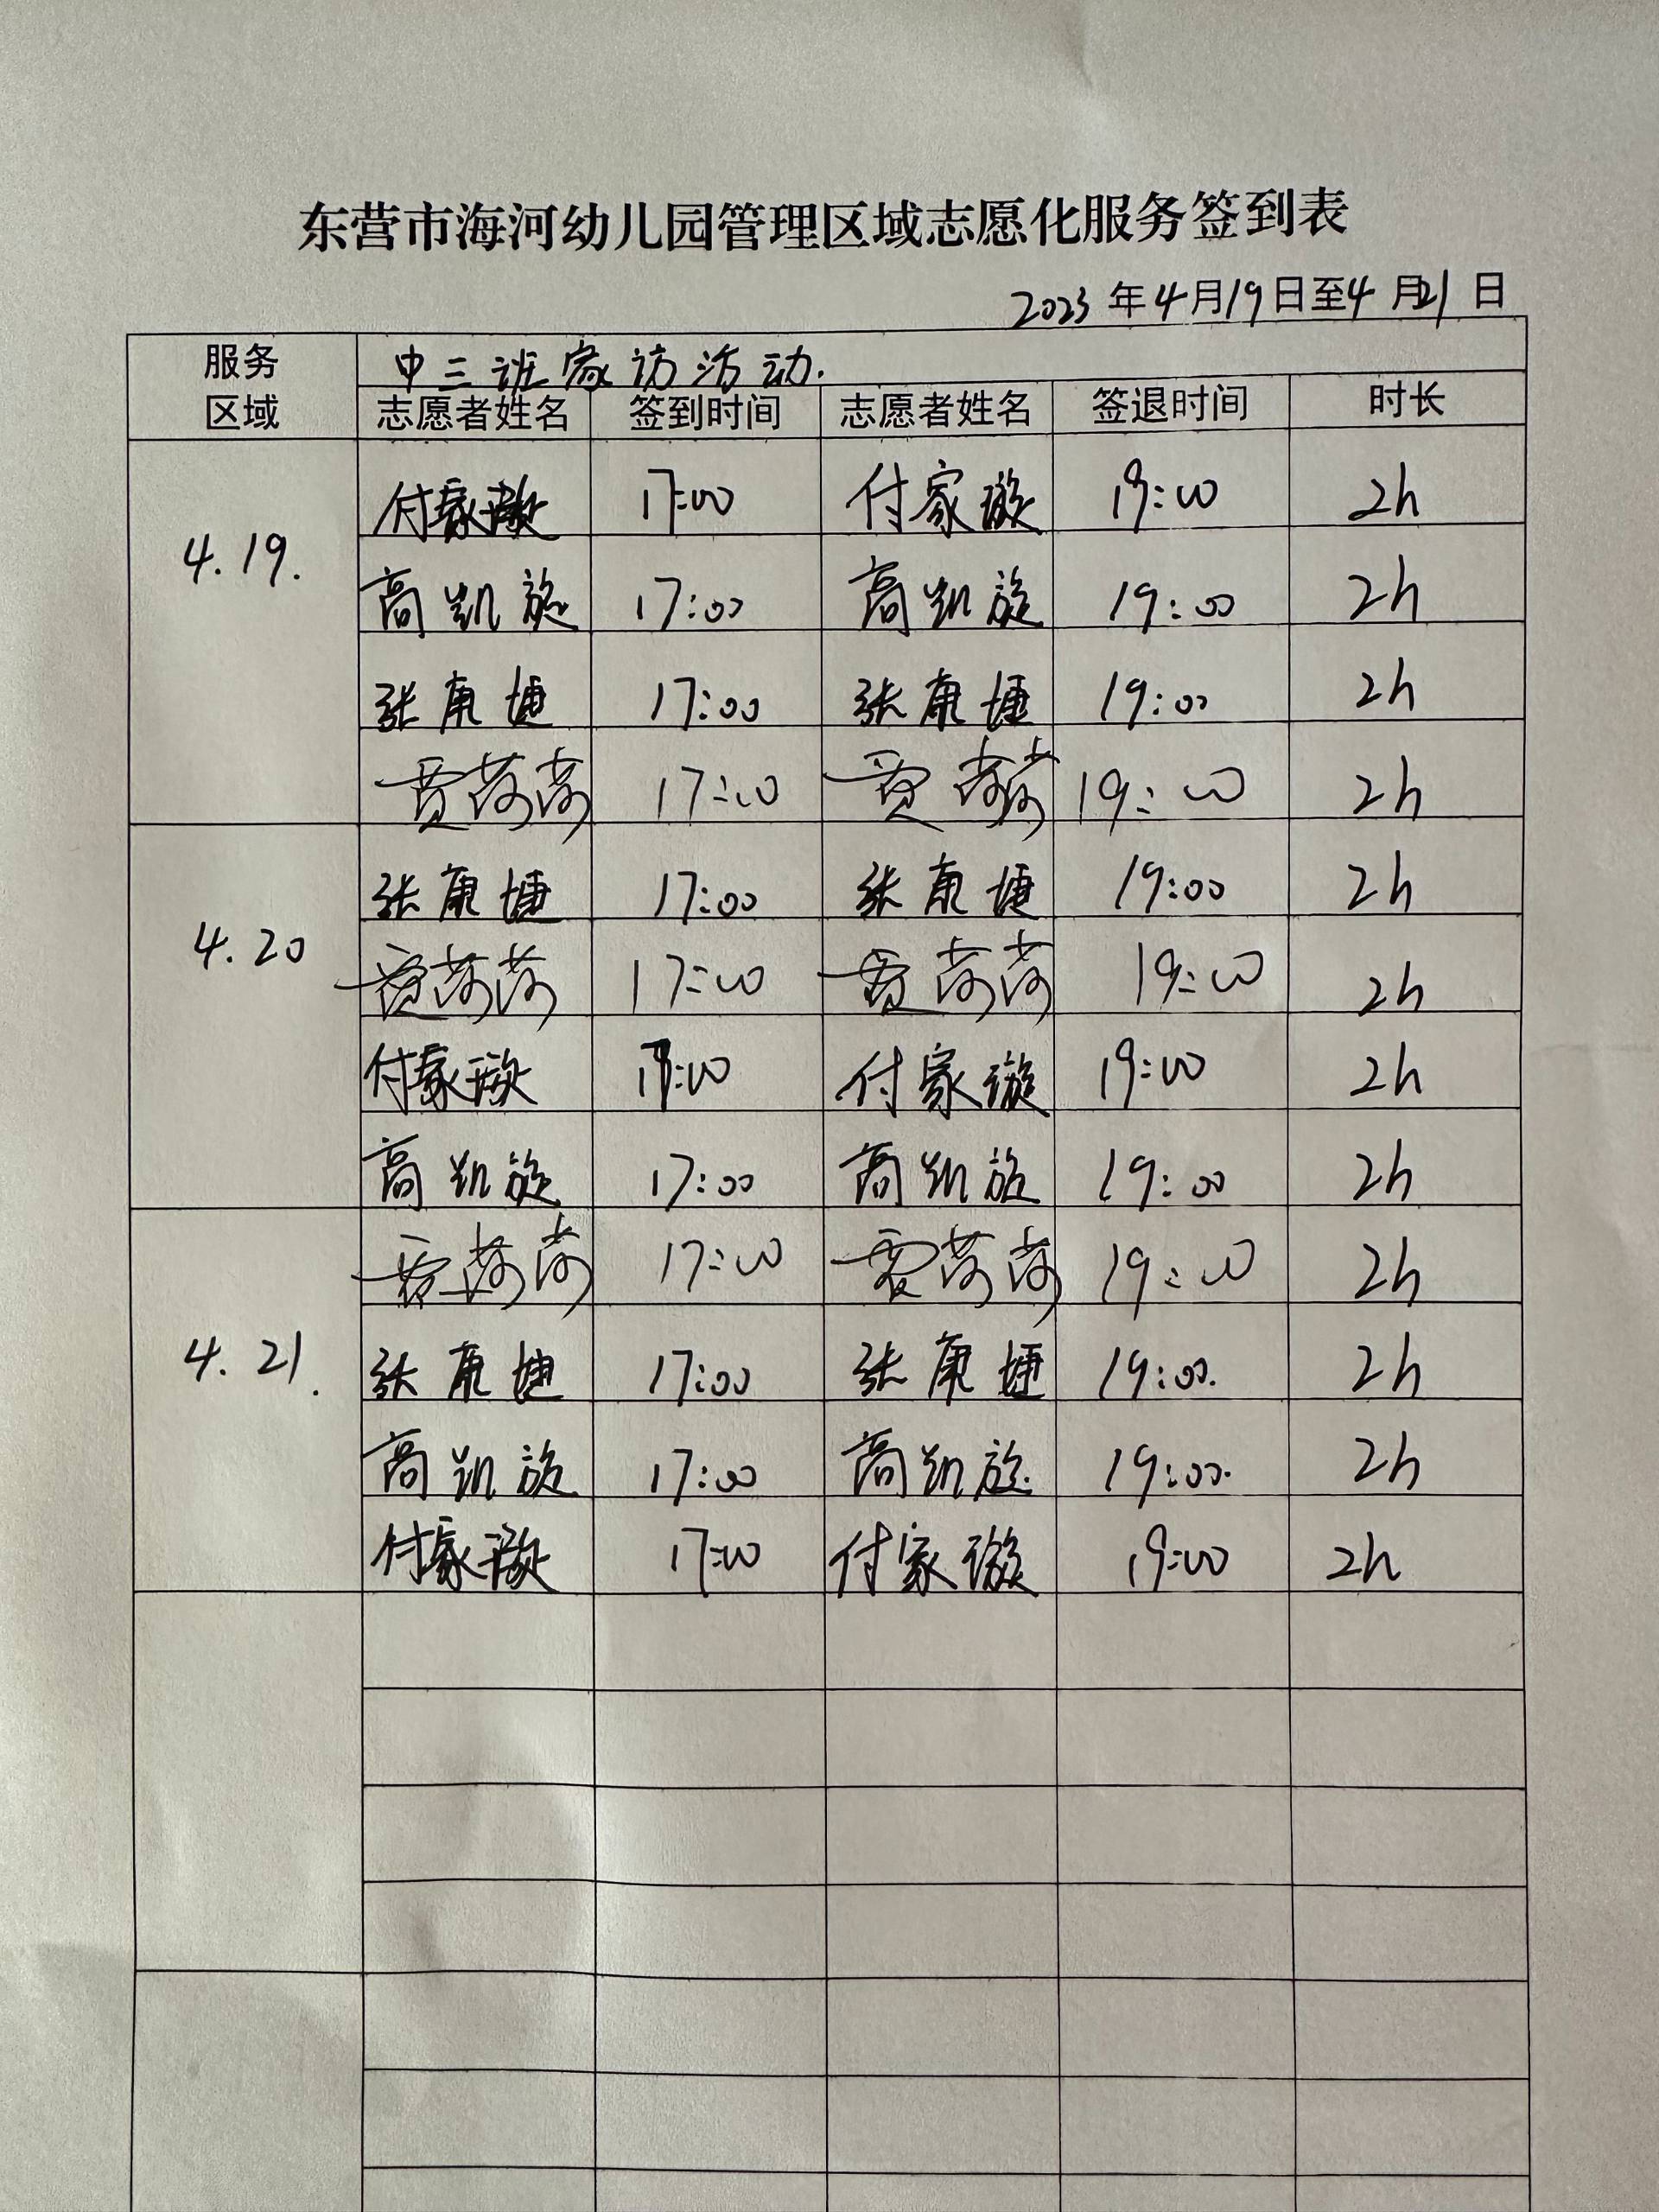 东营市海河幼儿园管理区域志愿化服务签到表
2023 年 4 月 19 日至 4 月 21 日
服务区域 中三班家访活动.
志愿者姓名 签到时间 志愿者姓名 签退时间 时长
4.19.
付家璇 17:00 付家璇 19:00 2h
高凯旋 17:00 高凯旋 19:00 2h
张康捷 17:00 张康捷 19:00 2h
贾荷荷 17:00 贾荷荷 19:00 2h
4.20
张康捷 17:00 张康捷 19:00 2h
贾荷荷 17:00 贾荷荷 19:00 2h
付家璇 17:00 付家璇 19:00 2h
高凯旋 17:00 高凯旋 19:00 2h
4.21.
贾荷荷 17:00 贾荷荷 19:00 2h
张康捷 17:00 张康捷 19:00. 2h
高凯旋 17:00 高凯旋. 19:00. 2h
付家璇 17:00 付家璇 19:00 2h